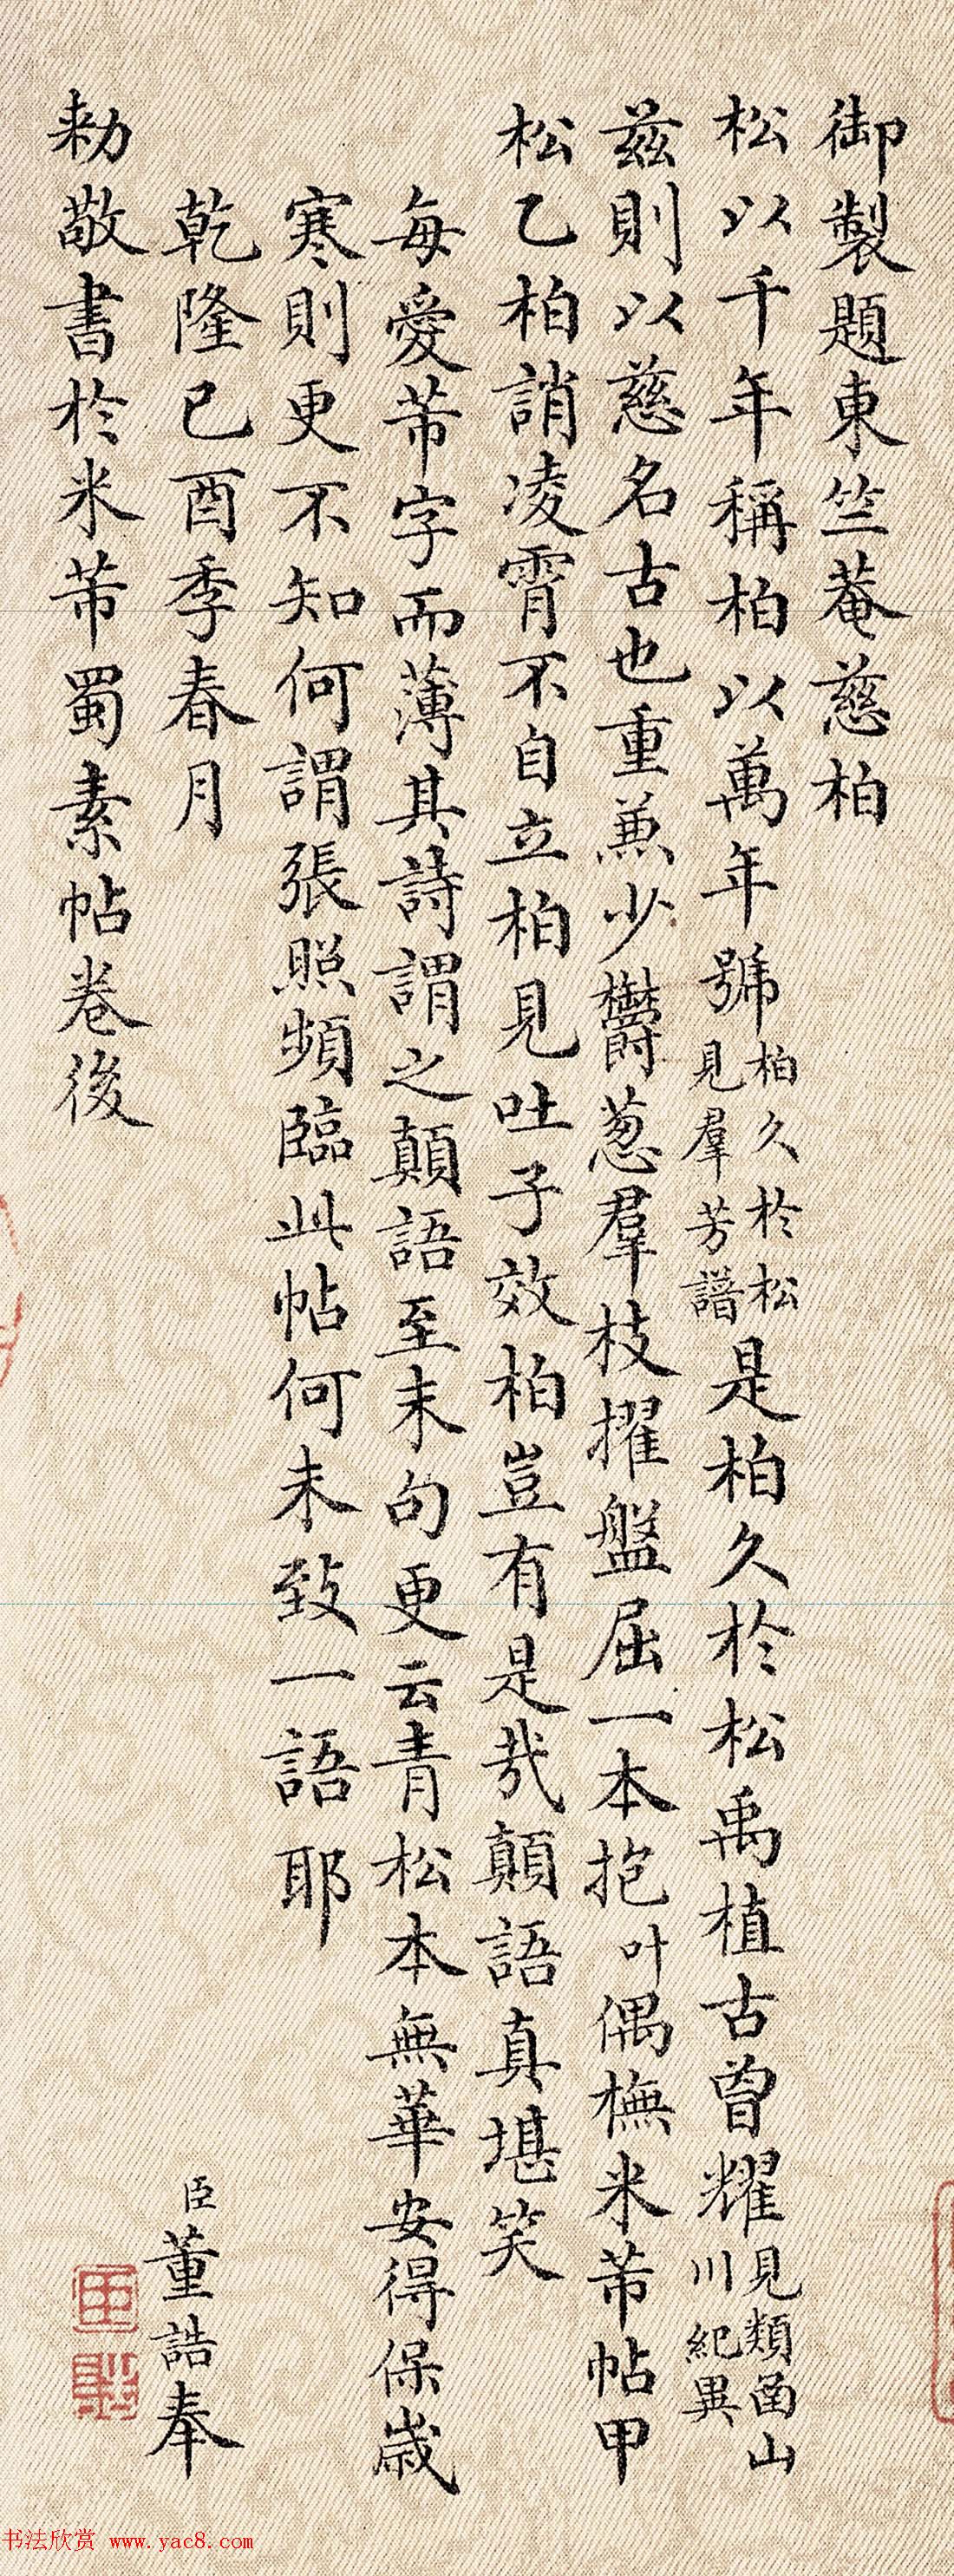 御製題東竺菴慈柏
松以千年稱柏以萬年號柏久於松見羣芳譜是柏久於松禹植古曾耀見類函山川紀異
茲則以慈名古也重無少欝葱羣枝擢盤屈一本抱叶偶橅米芾帖甲
松乙柏誚凌霄不自立柏見吐子效柏豈有是哉顛語真堪笑
每愛芾字而薄其詩謂之顛語至末句更云青松本無華安得保歲
寒則更不知何謂張照頻臨此帖何未致一語耶
乾隆己酉季春月
臣董誥奉
勅敬書於米芾蜀素帖卷後
书法欣赏 www.yac8.com